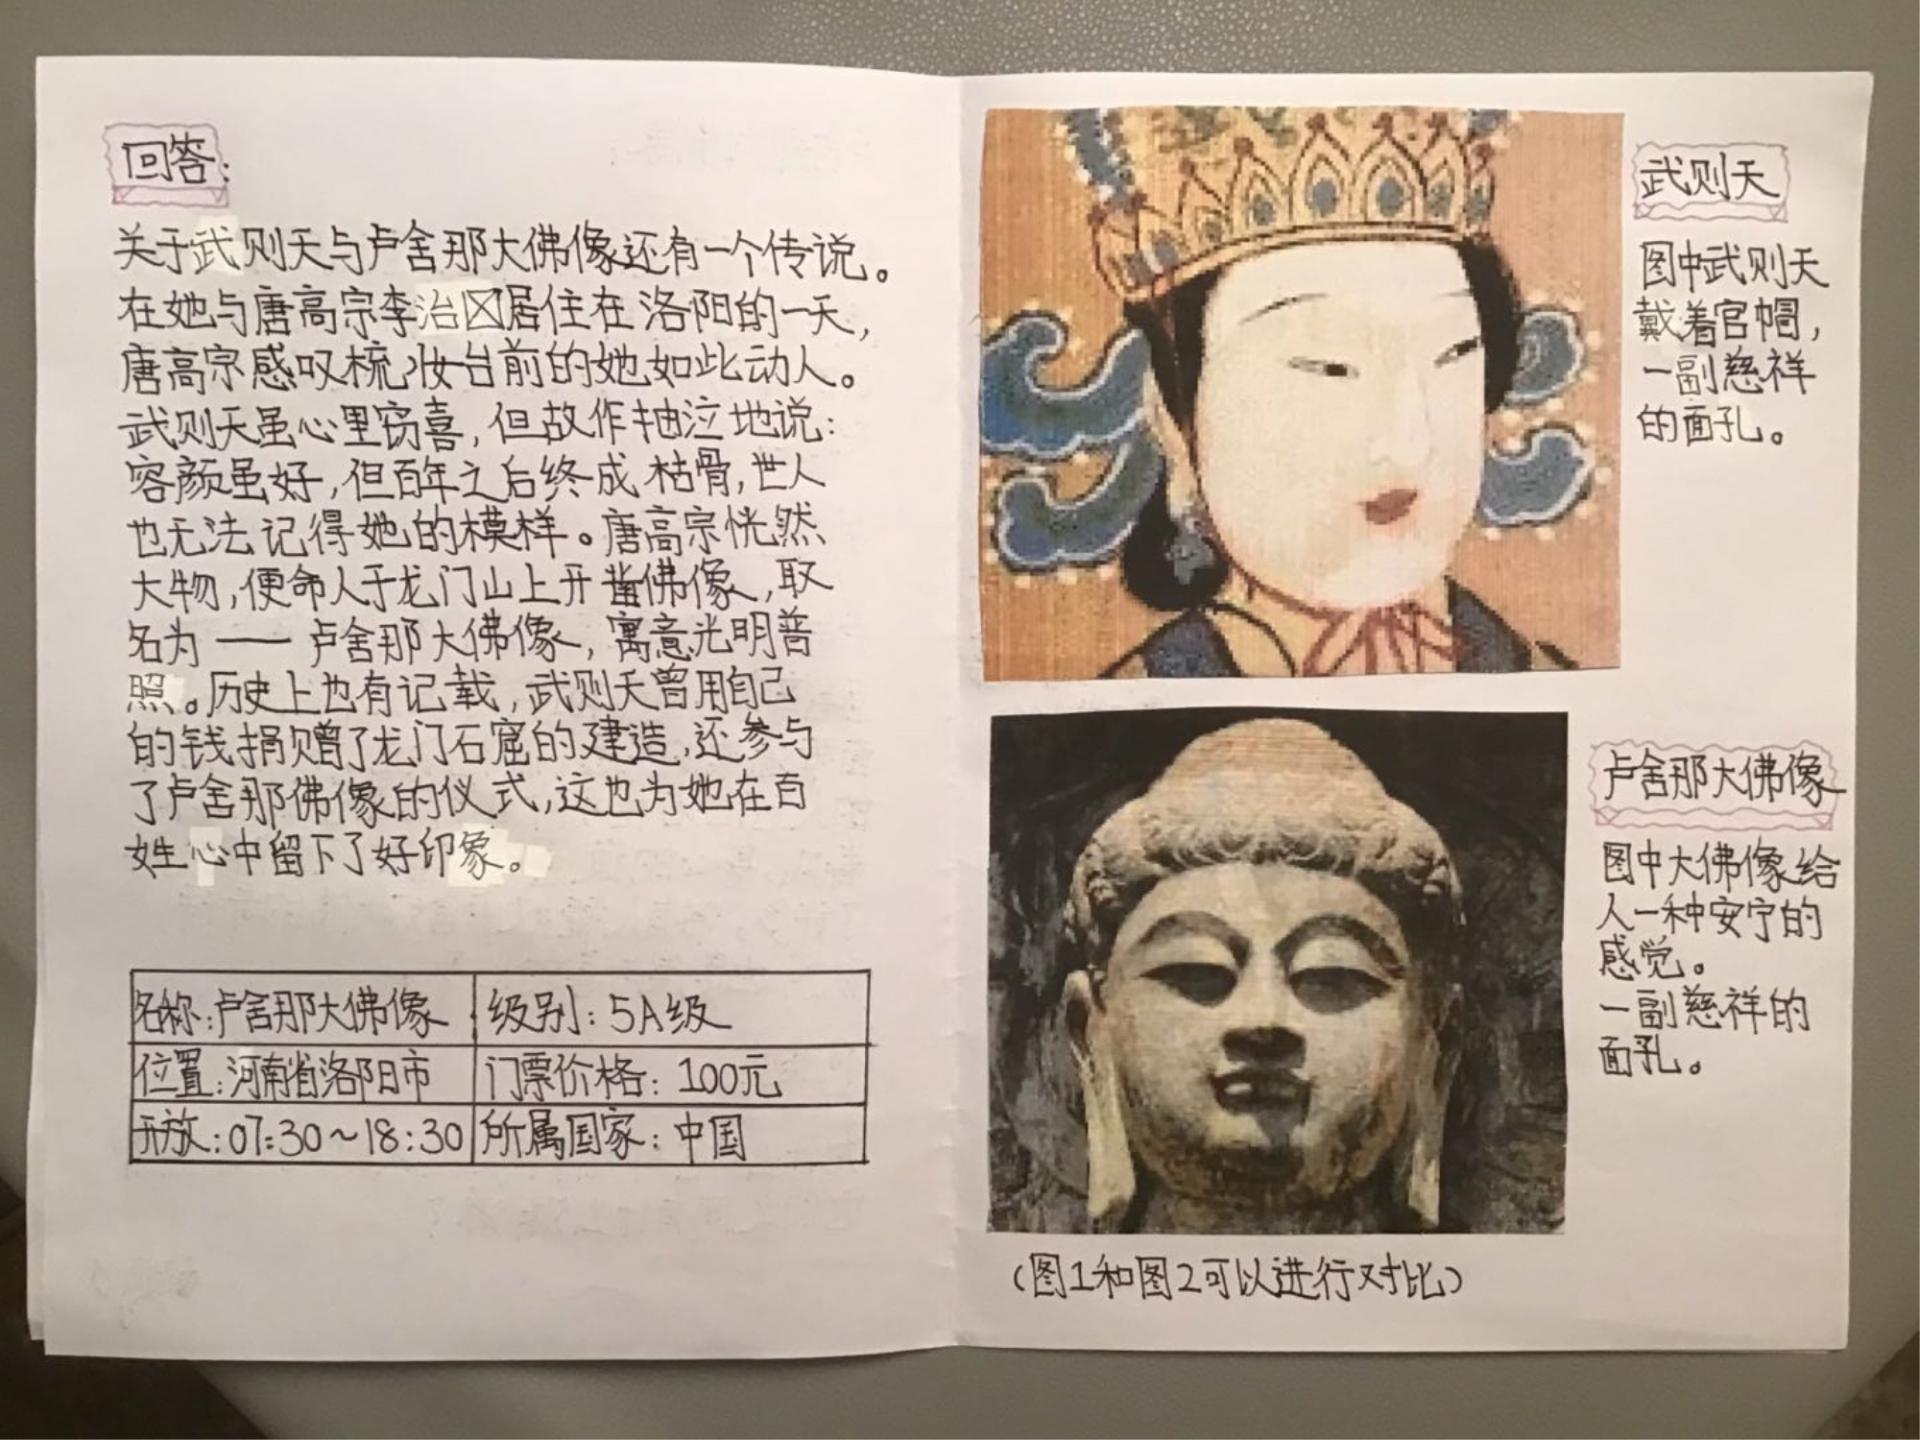 回答:
关于武则天与卢舍那大佛像还有一个传说。
在她与唐高宗李治居住在洛阳的一天,
唐高宗感叹梳妆台前的她如此动人。
武则天虽心里窃喜,但故作抽泣地说:
容颜虽好,但百年之后终成枯骨,世人
也无法记得她的模样。唐高宗恍然
大物,便命人于龙门山上开凿佛像,取
名为——卢舍那大佛像,寓意光明普
照。历史上也有记载,武则天曾用自己
的钱捐赠了龙门石窟的建造,还参与
了卢舍那佛像的仪式,这也为她在百
姓心中留下了好印象。
名称:卢舍那大佛像 级别:5A级
位置:河南省洛阳市 门票价格:100元
开放:07:30~18:30 所属国家:中国
武则天
图中武则天
戴着官帽,
一副慈祥
的面孔。
卢舍那大佛像
图中大佛像给
人一种安宁的
感觉。
一副慈祥的
面孔。
(图1和图2可以进行对比)